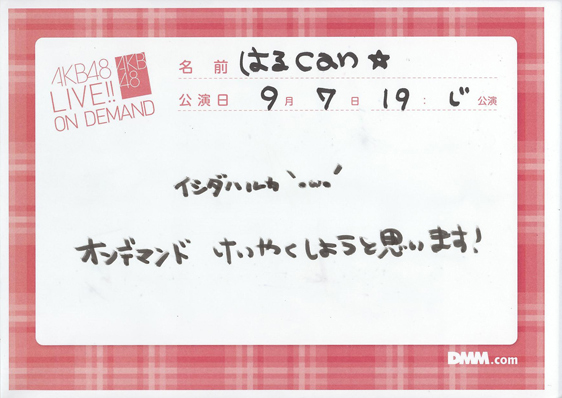 AKB48
LIVE!!
ON DEMAND
AKB
48
名前 はるcan☆
公演日 9月 7日 19:じ 公演
イシダハルカ '•ω•'
オンデマンド けいやくしようと思います!
DMM.com